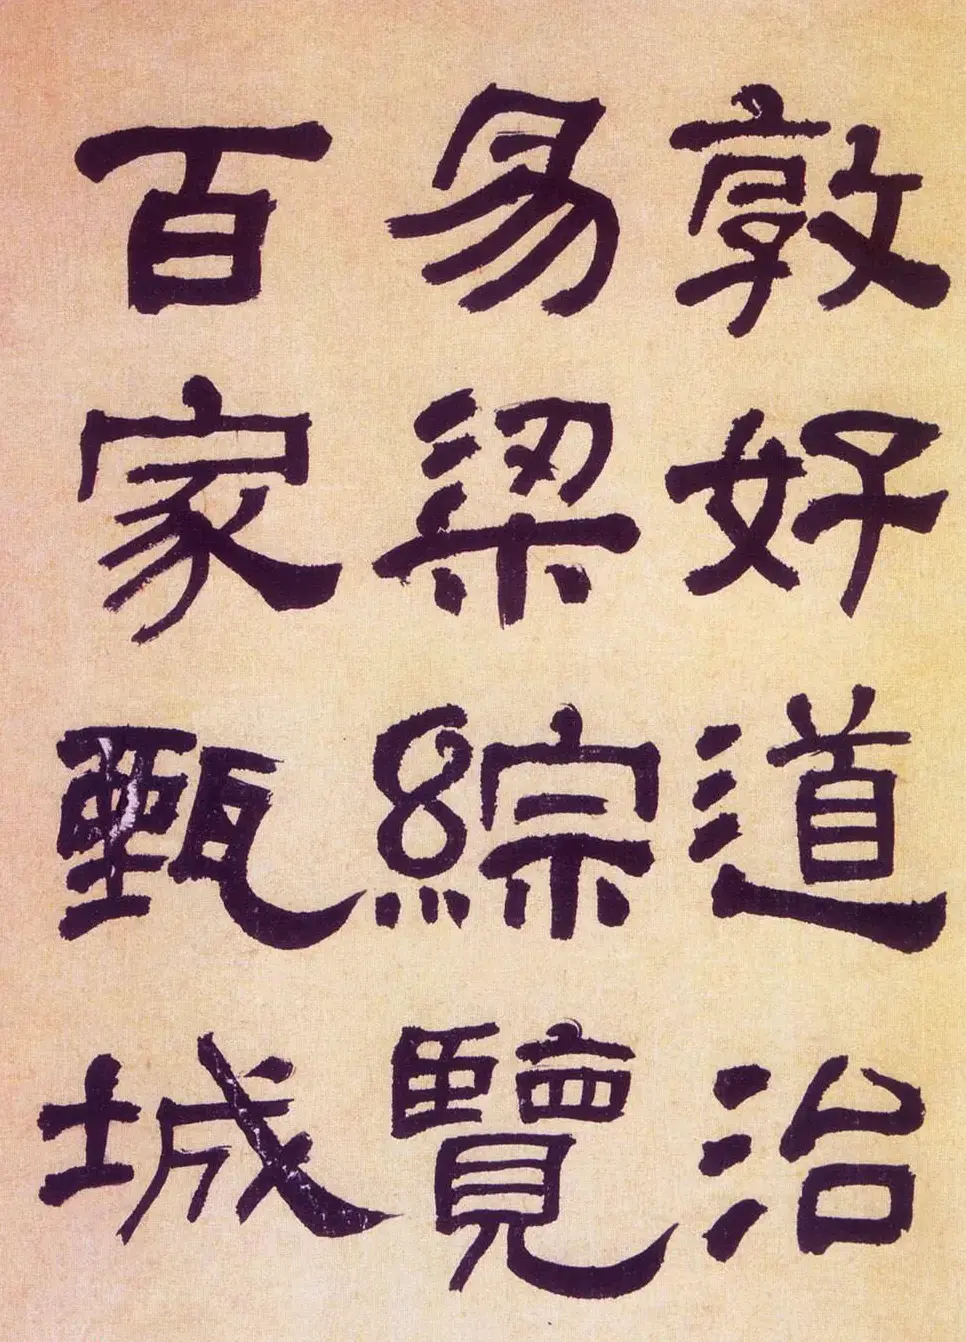 敦好道治
易梁綜覽
百家甄城